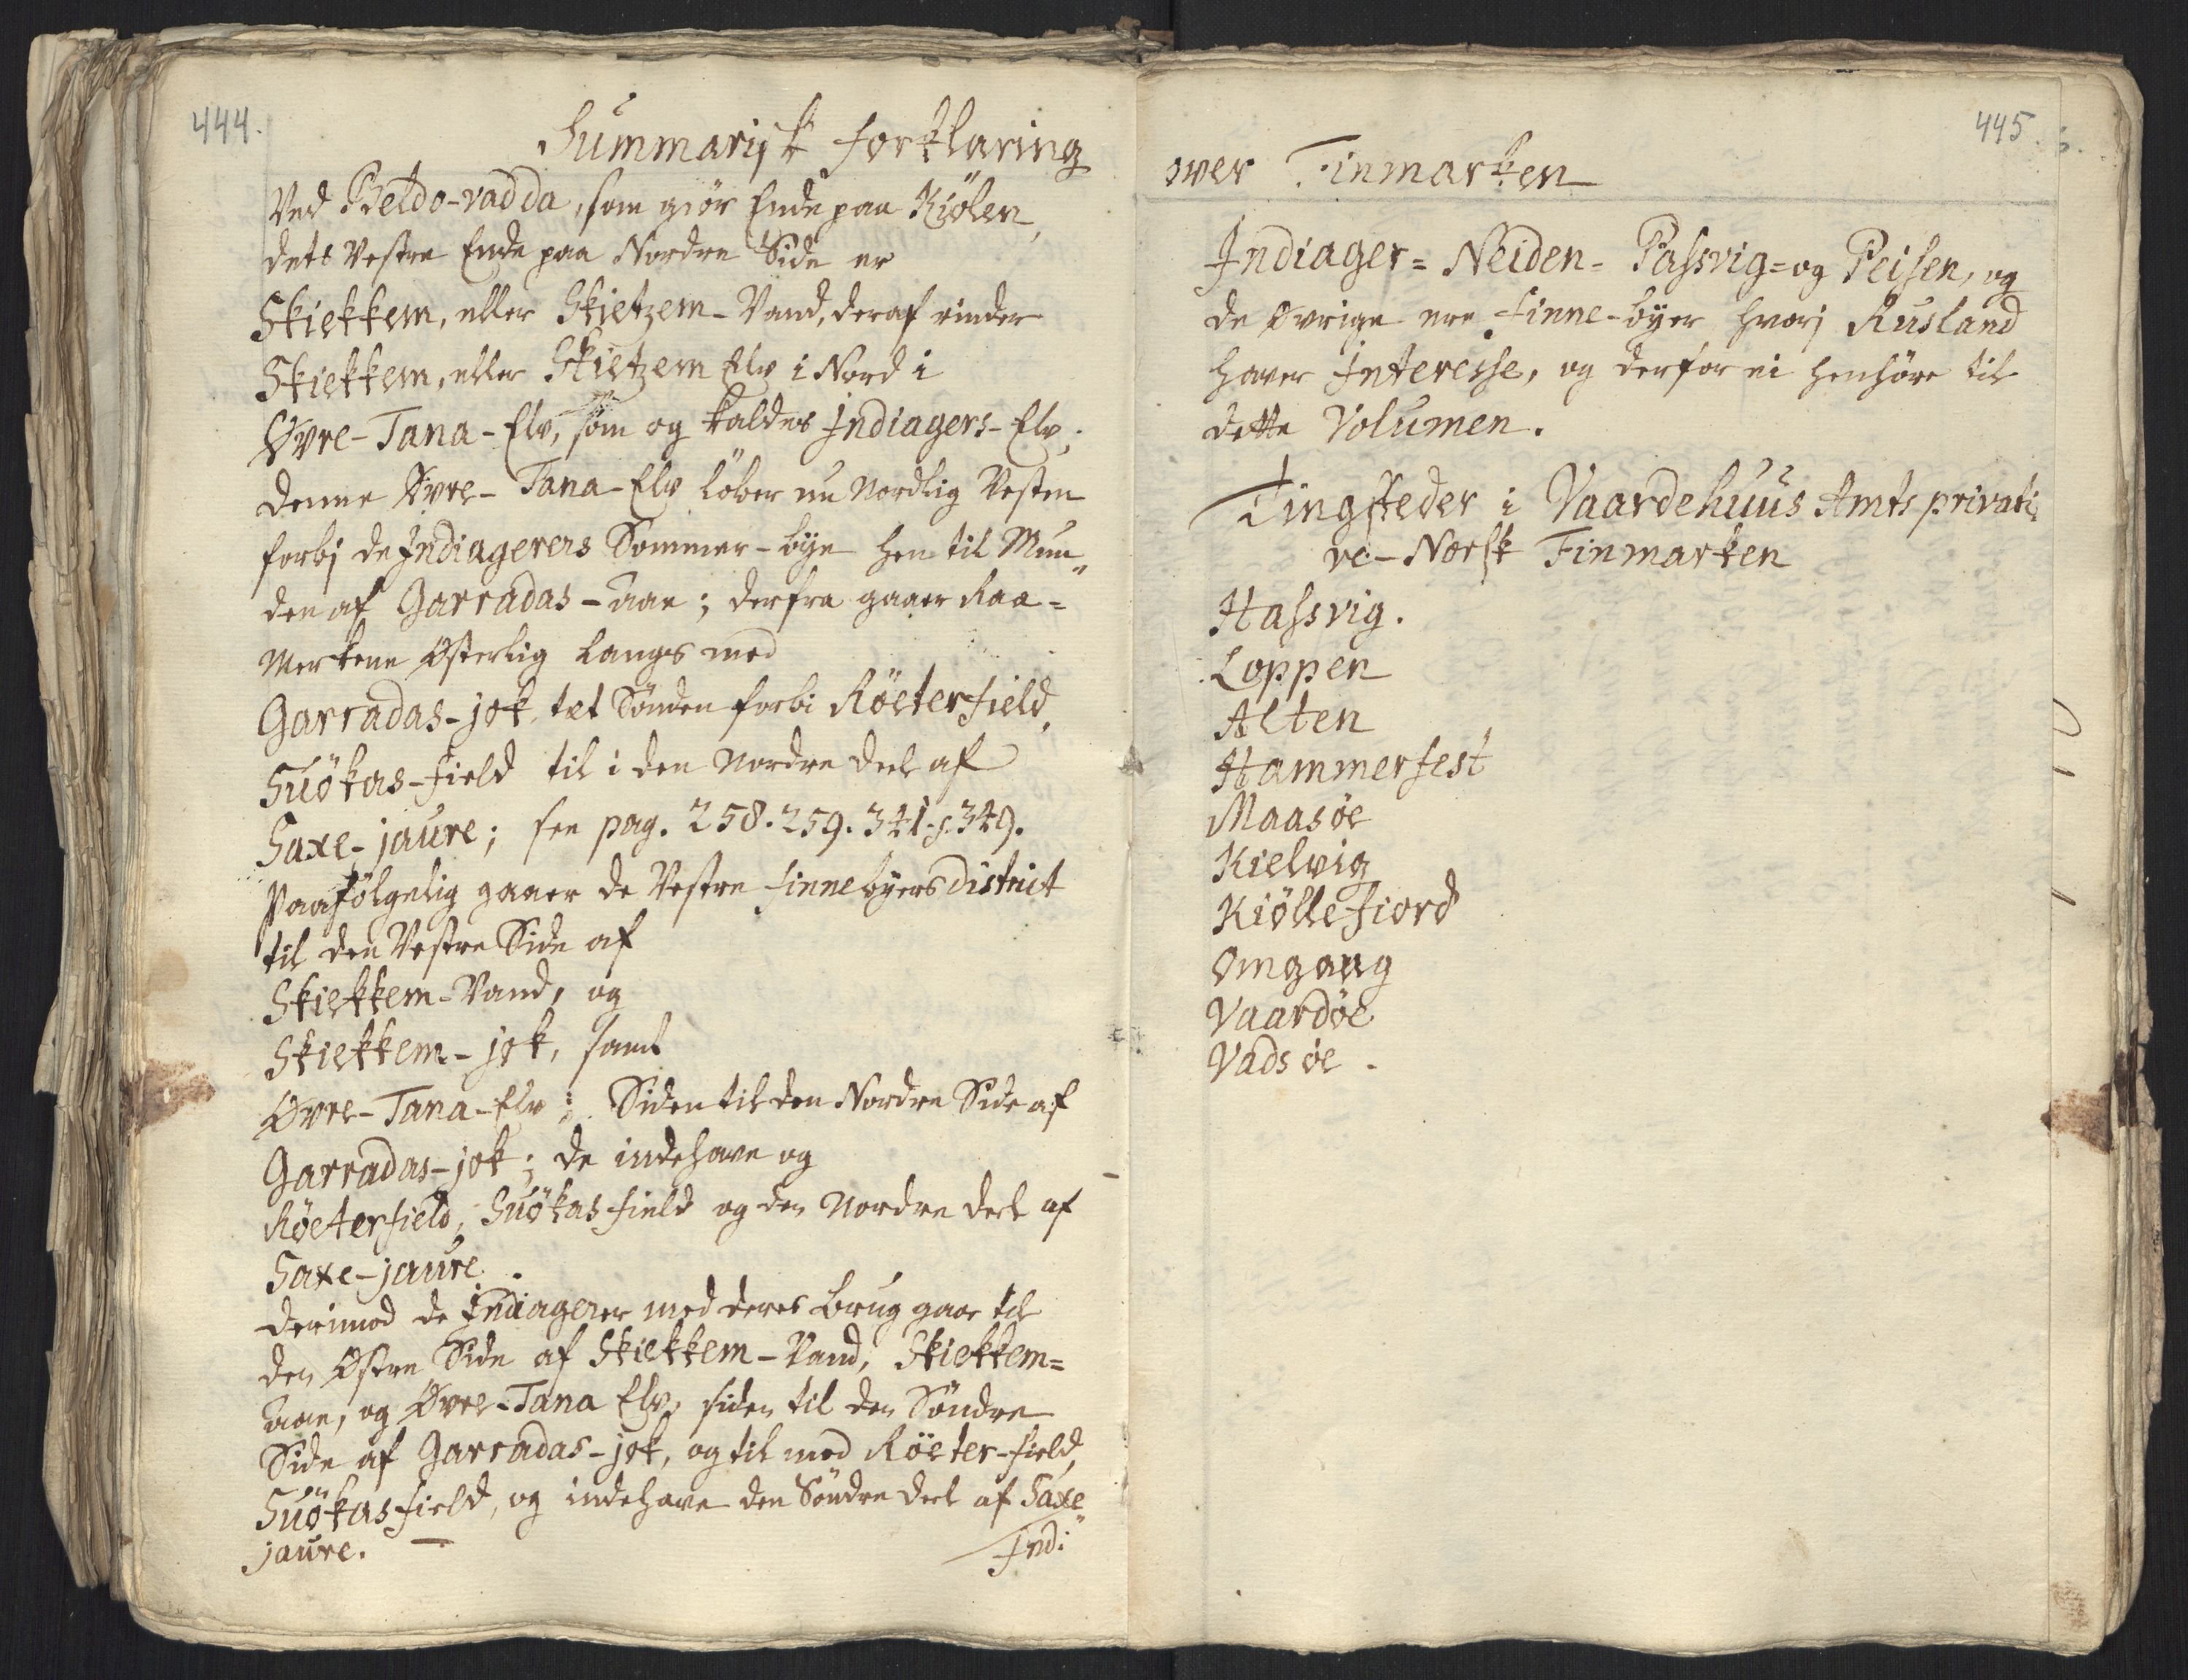 444.
Summarisk forklaring
Ved Beldo-vadda, som giör Ende paa Kiölen,
dets Vestre Ende paa Nordre Side er
Skiekkem, eller Skietzem-Vand, deraf rinder
Skiekkem, eller Skietzem Elv i Nord i
Øvre-Tana-Elv, som og kaldes Indiagers-Elv;
denne Øvre-Tana-Elv löber nu Nordlig Vesten
forbj de Indiagerers Sommer-bye hen til Mun„
den af Garradas-aae; derfra gaaer Raa=
Merkene Österlig langs med
Garradas-jok, tæt Sönden forbi Röeterfield,
Suökas-field til i den Nordre deel af
Saxe-jaure; see pag. 258. 259. 341-349.
Paafölgelig gaaer de Vestre finnebyers district
til den Vestre Side af
Skiekkem-Vand, og
Skiekkem-jok, samt
Øvre-Tana-Elv; Siden til den Nordre Side af
Garradas-jok; de indehave og
Röeterfield, Suökas field og den Nordre deel af
Saxe-jaure.
derimod de Indiagerer med deres brug gaar til
den Östre Side af Skiekkem-Vand, Skiekkem=
aae, og Øvre-Tana Elv, siden til den Söndre
Side af Garradas-jok, og til med Röeter-field,
Suökas field, og indehave den Söndre deel af Saxe„
jaure. —
Indi
445.
over Finmarken
Indiager= Neiden= Passvig= og Peisen, og
de Øvrige ere finne-byer hvorj Rusland
haver Interesse, og derfor ei henhöre til
dette Volumen.
Tingsteder i Vaardehuus Amts privati
ve-Norsk Finmarken
Hassvig.
Loppen
Alten
Hammerfest
Maasöe
Kielvig
Kiöllefiord
Omgang
Vaardöe
Vadsöe.